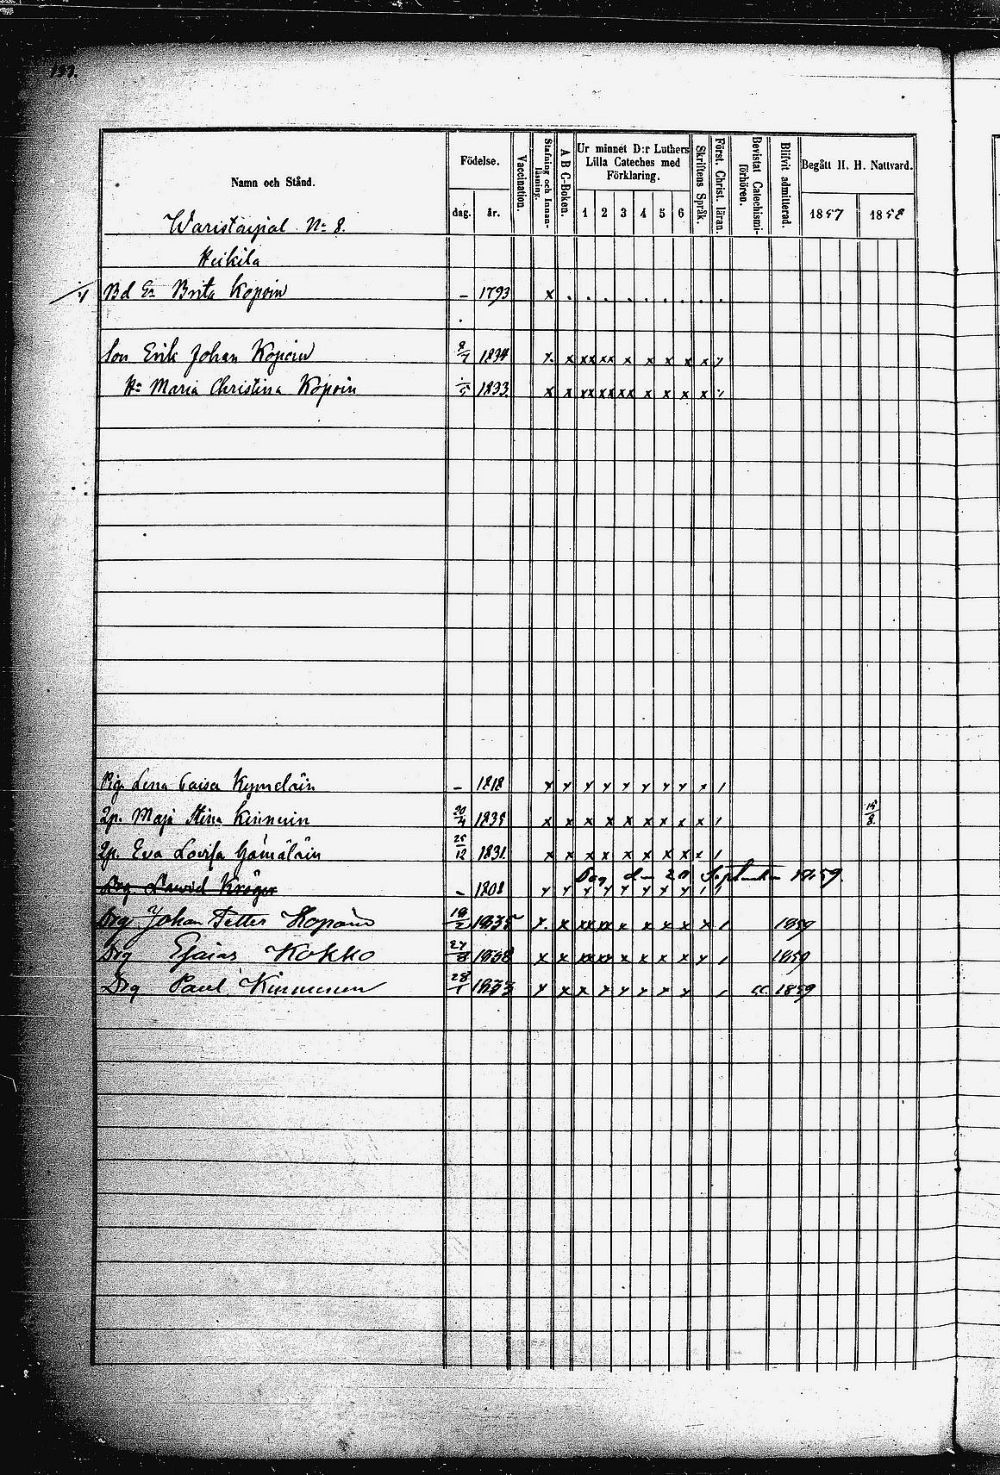 157.
Namn och Stånd.
Födelse.
dag. år.
Vaccination.
Stafning och Innan-läsning.
A B C-Boken.
Ur minnet D:r Luthers Lilla Cateches med Förklaring.
1 2 3 4 5 6
Skriftens Språk.
Först. Christ. läran.
Bevistat Catechismi-förhören.
Blifvit admitterad.
Begått H. H. Nattvard.
1857 1858
Waristaipal No 8.
Heikilä
Bd Brita Kopoin – 1793 x
Son Erik Johan Kopoin 1834 x x xx xx x x x x x
Hu Maria Christina Kopoin 1833 x x xx xx xx x x x x
Pig. Lena Caisa – 1818 x x x x x x x x x
Qp. Maja Stina Kinnuin 20/4 1835 x x x x x x x x x 18/8
Qp. Eva Lovisa Hämäläin 25/12 1831 x x x x x x x x x
Dog den 20 September 1859
Drg Dawid Kröger – 1808 x x x x x x x x
Drg Johan Petter Kopoin 1835 x x xx xx x x x x x 1859
Drg Esaias Kokko 1838 x x xx xx x x x x x 1859
Drg Paul Kinnunen 28/1 1833 x x x x x x x x 1859